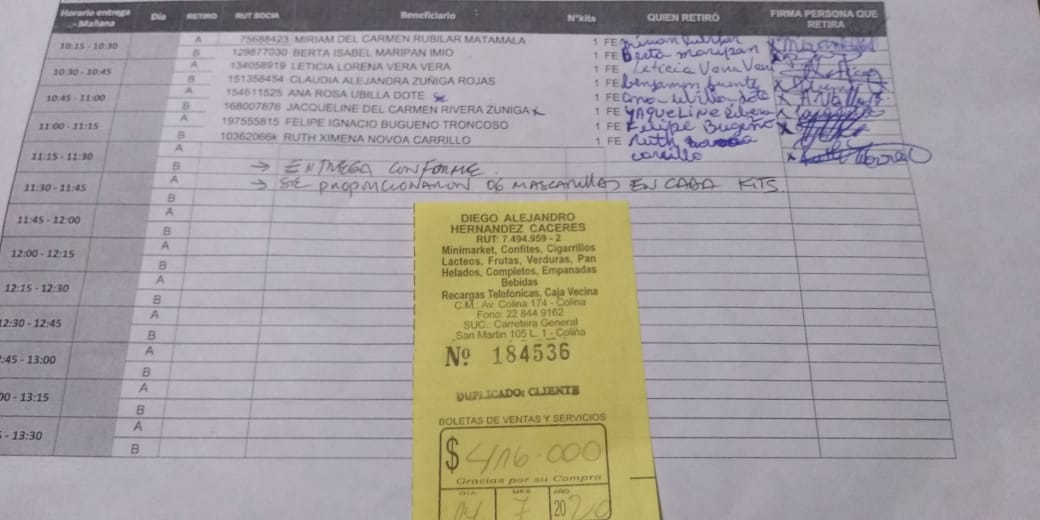 Horario entrega - Mañana Día RETIRO RUT SOCIA Beneficiario N°kits QUIEN RETIRÓ FIRMA PERSONA QUE RETIRA
10:15 - 10:30 A 75688423 MIRIAM DEL CARMEN RUBILAR MATAMALA 1 FE Miriam Rubilar
B 129877030 BERTA ISABEL MARIPAN IMIO 1 FE Berta maripan
10:30 - 10:45 A 134058919 LETICIA LORENA VERA VERA 1 FE Leticia Vera Vera
B 151358454 CLAUDIA ALEJANDRA ZUÑIGA ROJAS 1 FE benjamin fuente
10:45 - 11:00 A 154611525 ANA ROSA UBILLA DOTE 1 FE Ana ubilla dote
B 168007876 JACQUELINE DEL CARMEN RIVERA ZUNIGA 1 FE YAqueLine Ribera
11:00 - 11:15 A 197555815 FELIPE IGNACIO BUGUENO TRONCOSO 1 FE Felipe Bugeño
B 10362066k RUTH XIMENA NOVOA CARRILLO 1 FE Ruth novoa carrillo
11:15 - 11:30 A
B → ENTREGA CONFORME.
11:30 - 11:45 A → SE PROPORCIONARON 06 MASCARILLAS EN CADA KITS.
B
11:45 - 12:00 A
B
12:00 - 12:15 A
B
12:15 - 12:30 A
B
12:30 - 12:45 A
B
:45 - 13:00 A
B
00 - 13:15 A
B
- 13:30 A
B
DIEGO ALEJANDRO
HERNANDEZ CACERES
RUT: 7.494.959 - 2
Minimarket, Confites, Cigarrillos
Lacteos, Frutas, Verduras, Pan
Helados, Completos, Empanadas
Bebidas
Recargas Telefonicas, Caja Vecina
C.M.: Av. Colina 174 - Colina
Fono: 22 844 9162
SUC.: Carretera General
San Martin 105 L. 1 - Colina
Nº 184536
DUPLICADO: CLIENTE
BOLETAS DE VENTAS Y SERVICIOS
$ 416.000
Gracias por su Compra
DIA MES AÑO
14 7 2020